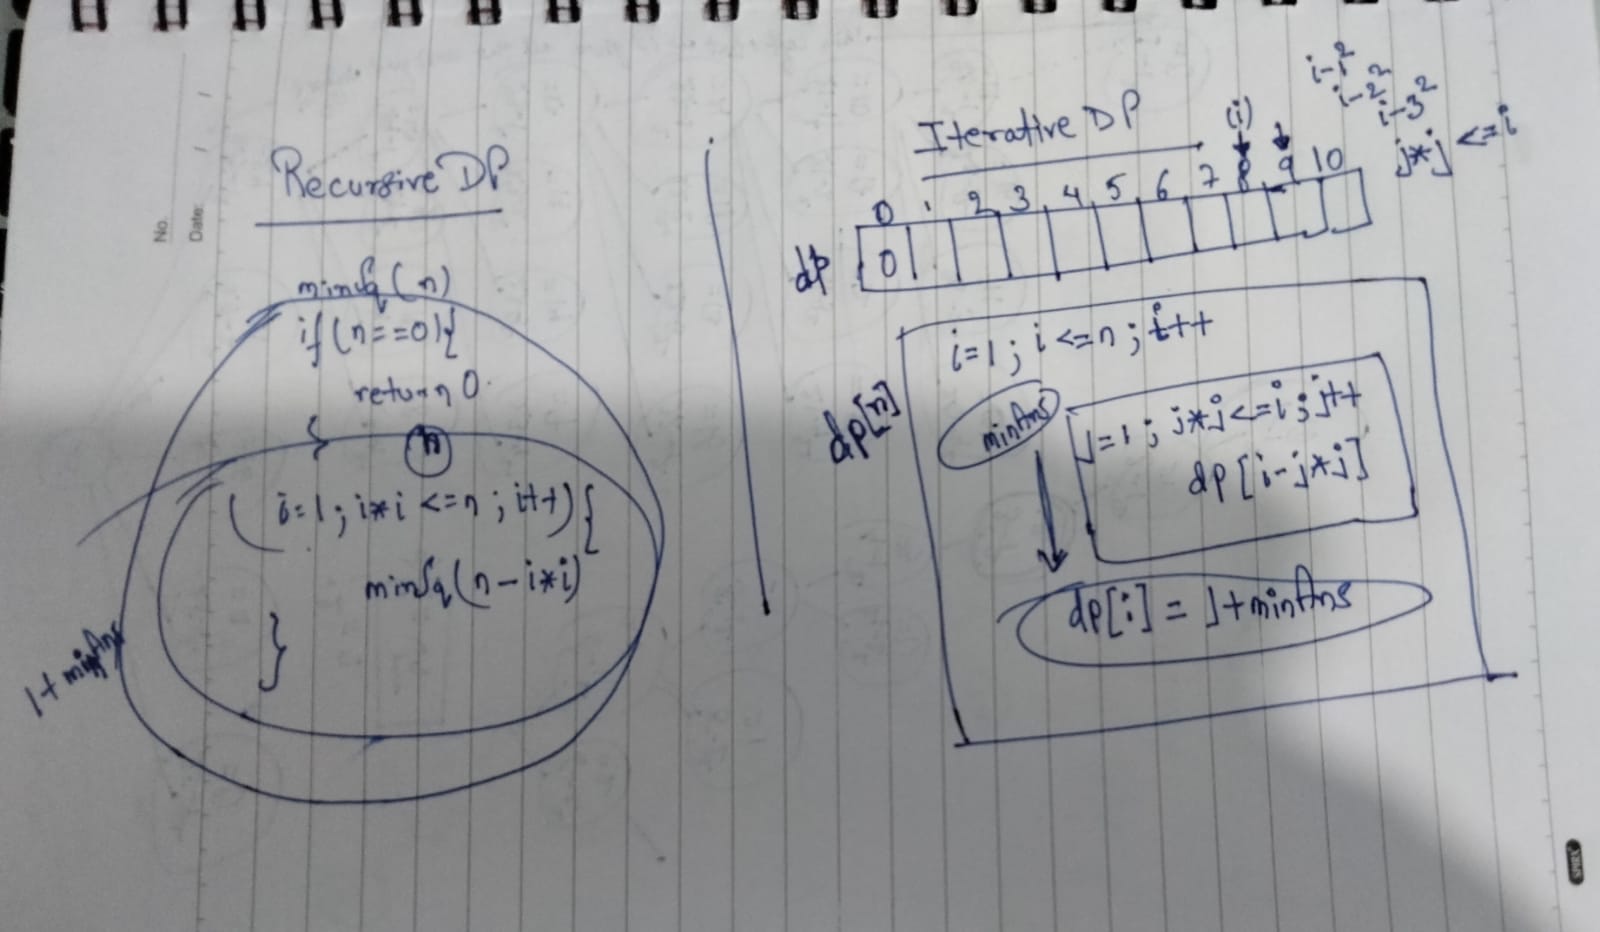 No.
Date:
Recursive DP
minSq(n)
if(n==0){
return 0
}
n
( i=1; i*i <=n; i++){
minSq(n-i*i)
}
1+minAns
Iterative DP
(i)
i-1²
i-2²
i-3²
j*j <=i
0 1 2 3 4 5 6 7 8 9 10
dp 0
dp[n]
i=1; i<=n; i++
minAns
j=1; j*j<=i; j++
dp[i-j*j]
dp[i] = 1+minAns
SPIRX